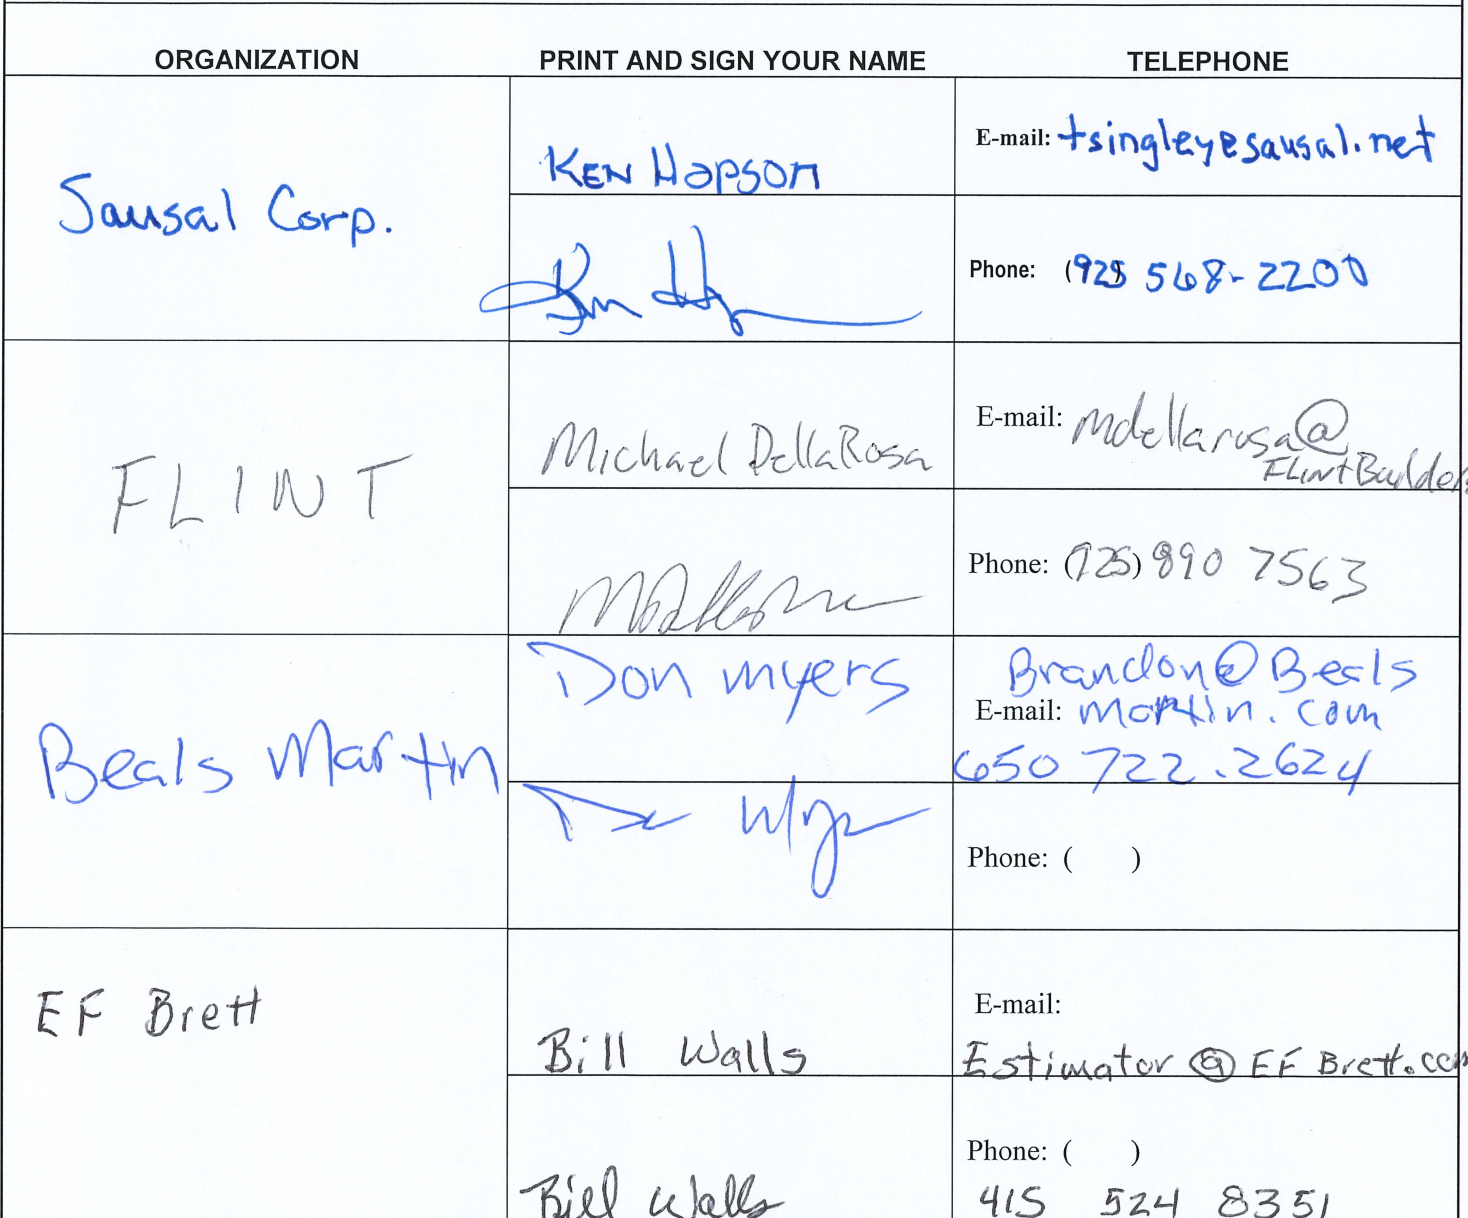 ORGANIZATION PRINT AND SIGN YOUR NAME TELEPHONE
Sausal Corp.
KEN HOPSON
E-mail: tsingley@sausal.net
Ken H
Phone: (925) 568-2200
FLINT
Michael DellaRosa
E-mail: mdellarosa@
FLintBuilders
Phone: (925) 890 7563
Beals Martin
Don myers
Brandon@Beals
E-mail: martin.com
650 722.2624
Phone: ( )
EF Brett
Bill Walls
E-mail:
Estimator @ EF Brett.com
Bill Walls
Phone: ( )
415 524 8351